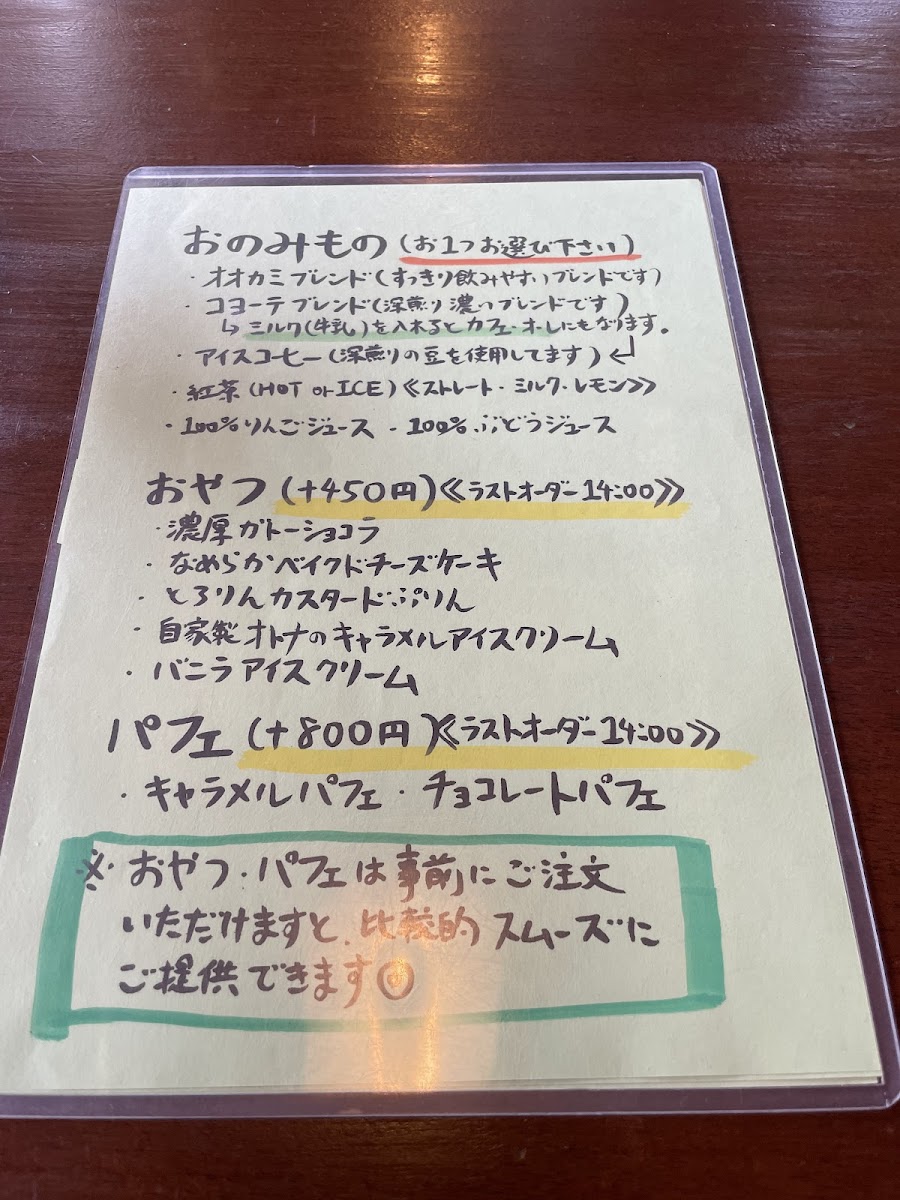 おのみもの(お1つお選び下さい)
・オオカミブレンド(すっきり飲みやすいブレンドです)
・コヨーテブレンド(深煎り濃いブレンドです)
↳ミルク(牛乳)を入れるとカフェ・オーレにもなります。
・アイスコーヒー(深煎りの豆を使用してます)↲
・紅茶(HOT or ICE)《ストレート・ミルク・レモン》
・100%りんごジュース ・100%ぶどうジュース
おやつ(+450円)《ラストオーダー14:00》
・濃厚ガトーショコラ
・なめらかベイクドチーズケーキ
・とろりんカスタードぷりん
・自家製オトナのキャラメルアイスクリーム
・バニラアイスクリーム
パフェ(+800円)《ラストオーダー14:00》
・キャラメルパフェ・チョコレートパフェ
※おやつ・パフェは事前にご注文
いただけますと、比較的スムーズに
ご提供できます◎